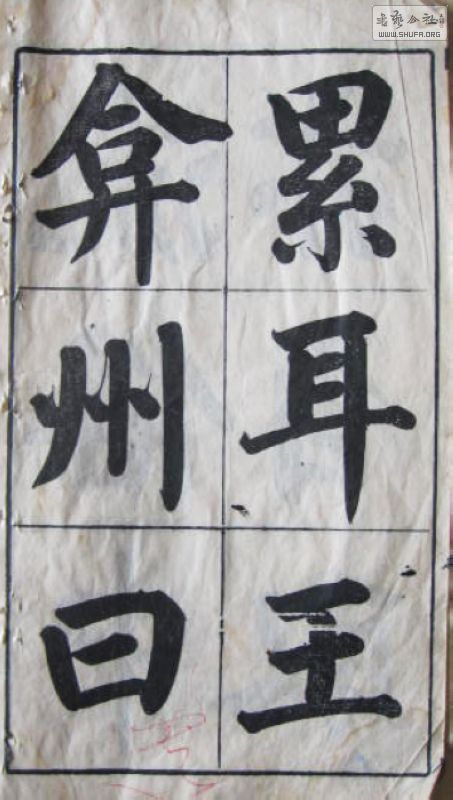 累耳王
弇州曰
書藝公社
WWW.SHUFA.ORG